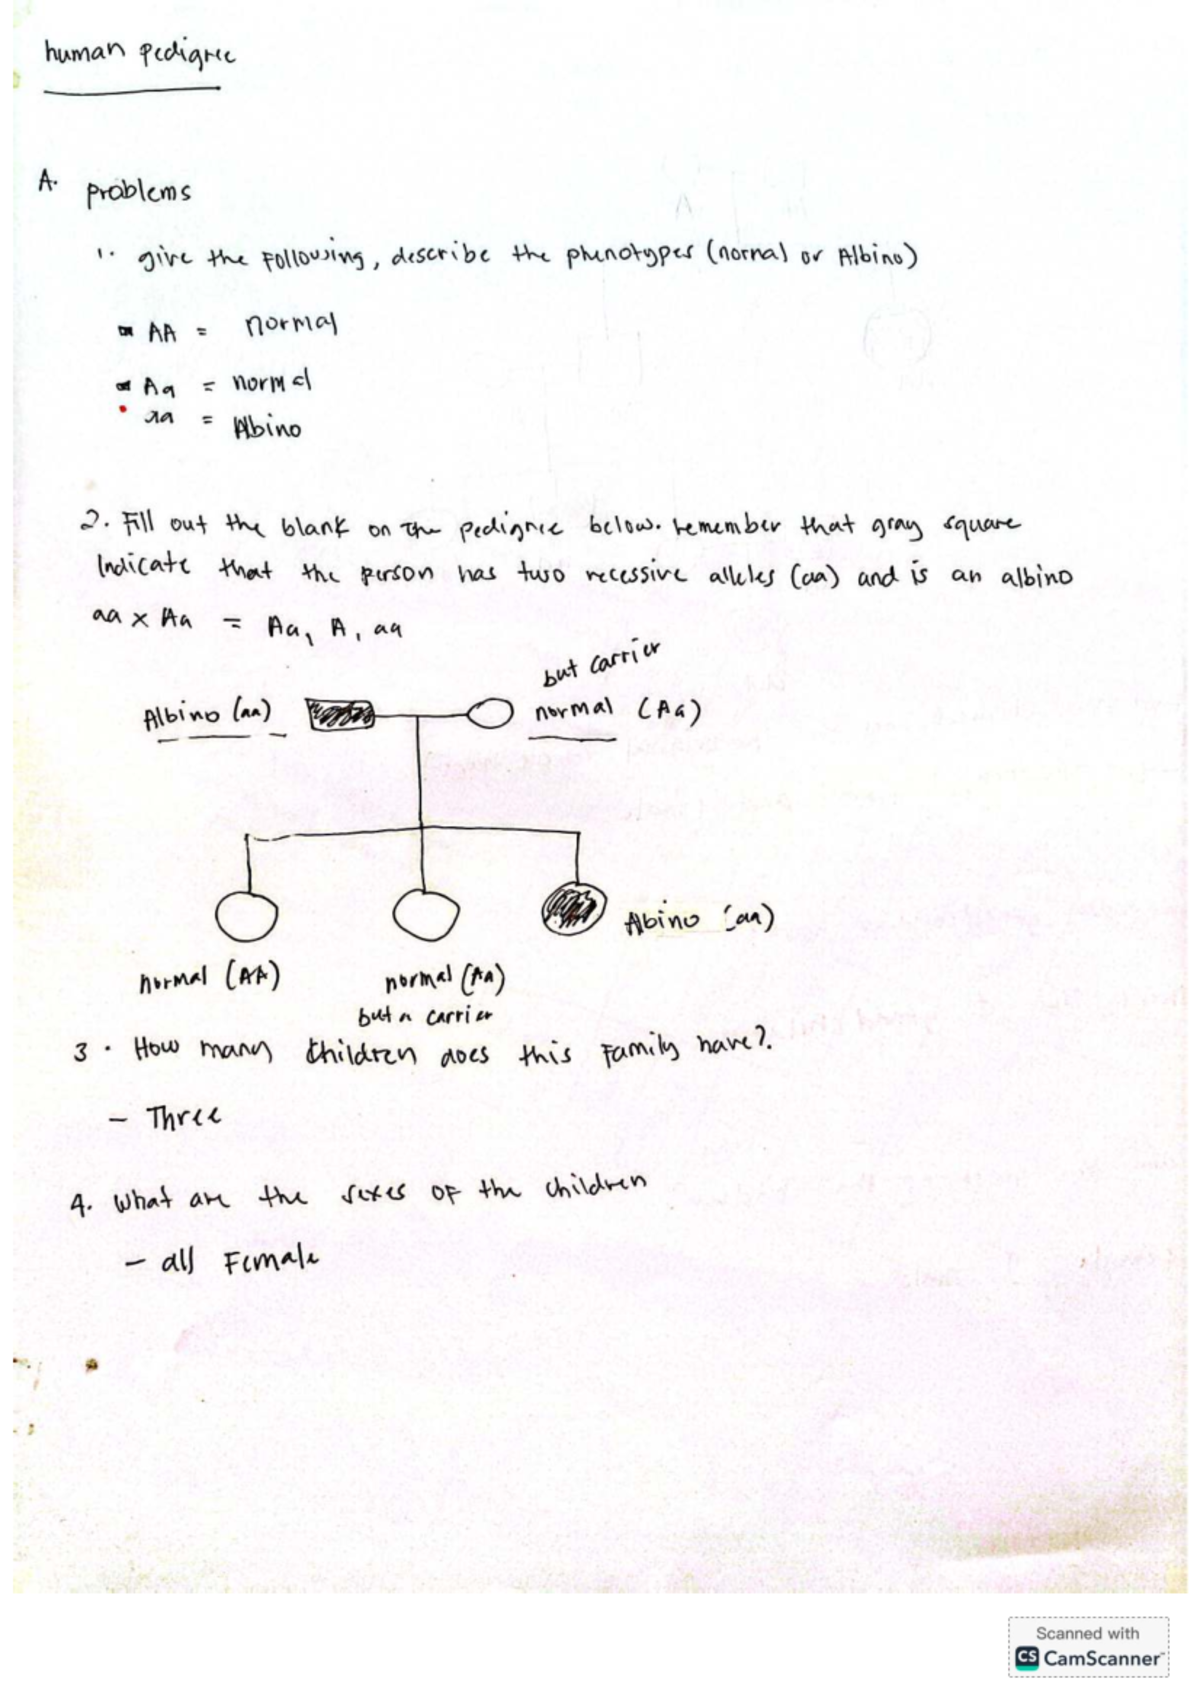 human pedigree
A. problems
1. give the following, describe the phenotypes (normal or Albino)
AA = normal
Aa = normal
aa = Albino
2. Fill out the blank on the pedigree below. remember that gray square
Indicate that the person has two recessive alleles (aa) and is an albino
aa x Aa = Aa, A, aa
but carrier
Albino (aa) normal (Aa)
Albino (aa)
normal (AA) normal (Aa)
but a carrier
3. How many children does this family have?.
- Three
4. What are the sexes of the children
- all Female
Scanned with
CS CamScanner